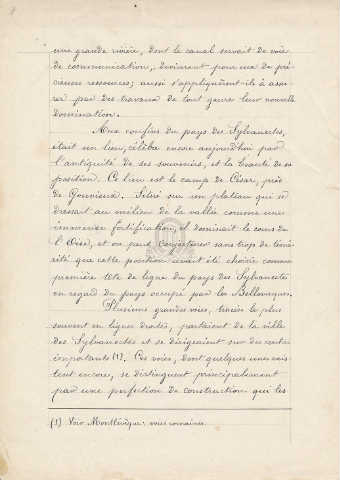 une grande rivière, dont le canal servait de voie
de communication, devinrent pour eux de pré-
cieuses ressources; aussi s'appliquèrent-ils à assu-
rer par des travaux de tout genre leur nouvelle
domination.
Aux confins du pays des Sylvanectes,
était un lieu, célèbre encore aujourd'hui par
l'antiquité de ses souvenirs, et la beauté de sa
position. Ce lieu est le camp de César, près
de Gouvieux. Situé sur un plateau qui se
dressait au milieu de la vallée comme une
immense fortification, il dominait le cours de
l'Oise, et on peut conjecturer sans trop de témé-
rité que cette position avait été choisie comme
première tête de ligne du pays des Sylvanectes
en regard du pays occupé par les Bellovaques.
Plusieurs grandes voies, tracées le plus
souvent en lignes droites, partaient de la ville
des Sylvanectes et se dirigeaient sur des centres
importants (1). Ces voies, dont quelques unes exis-
tent encore, se distinguent principalement
par une perfection de construction qui les
(1) Voir Monthévique: voies romaines.